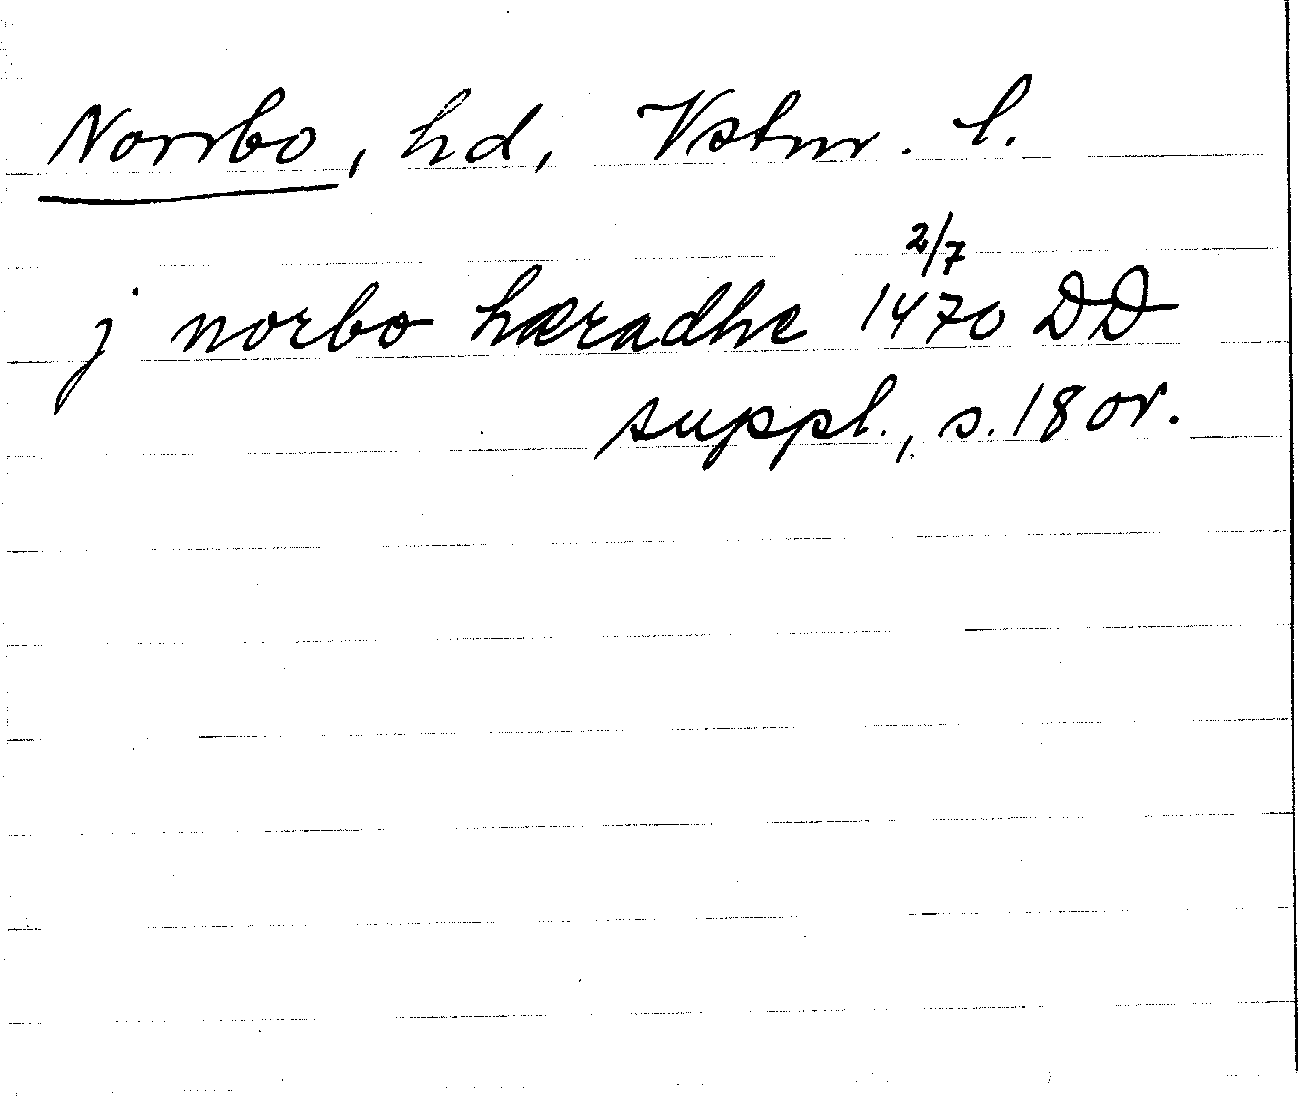 Norrbo, hd, Vstm. l.
j norbo hæradhe 1470 2/7 DD
suppl., s. 18 or.